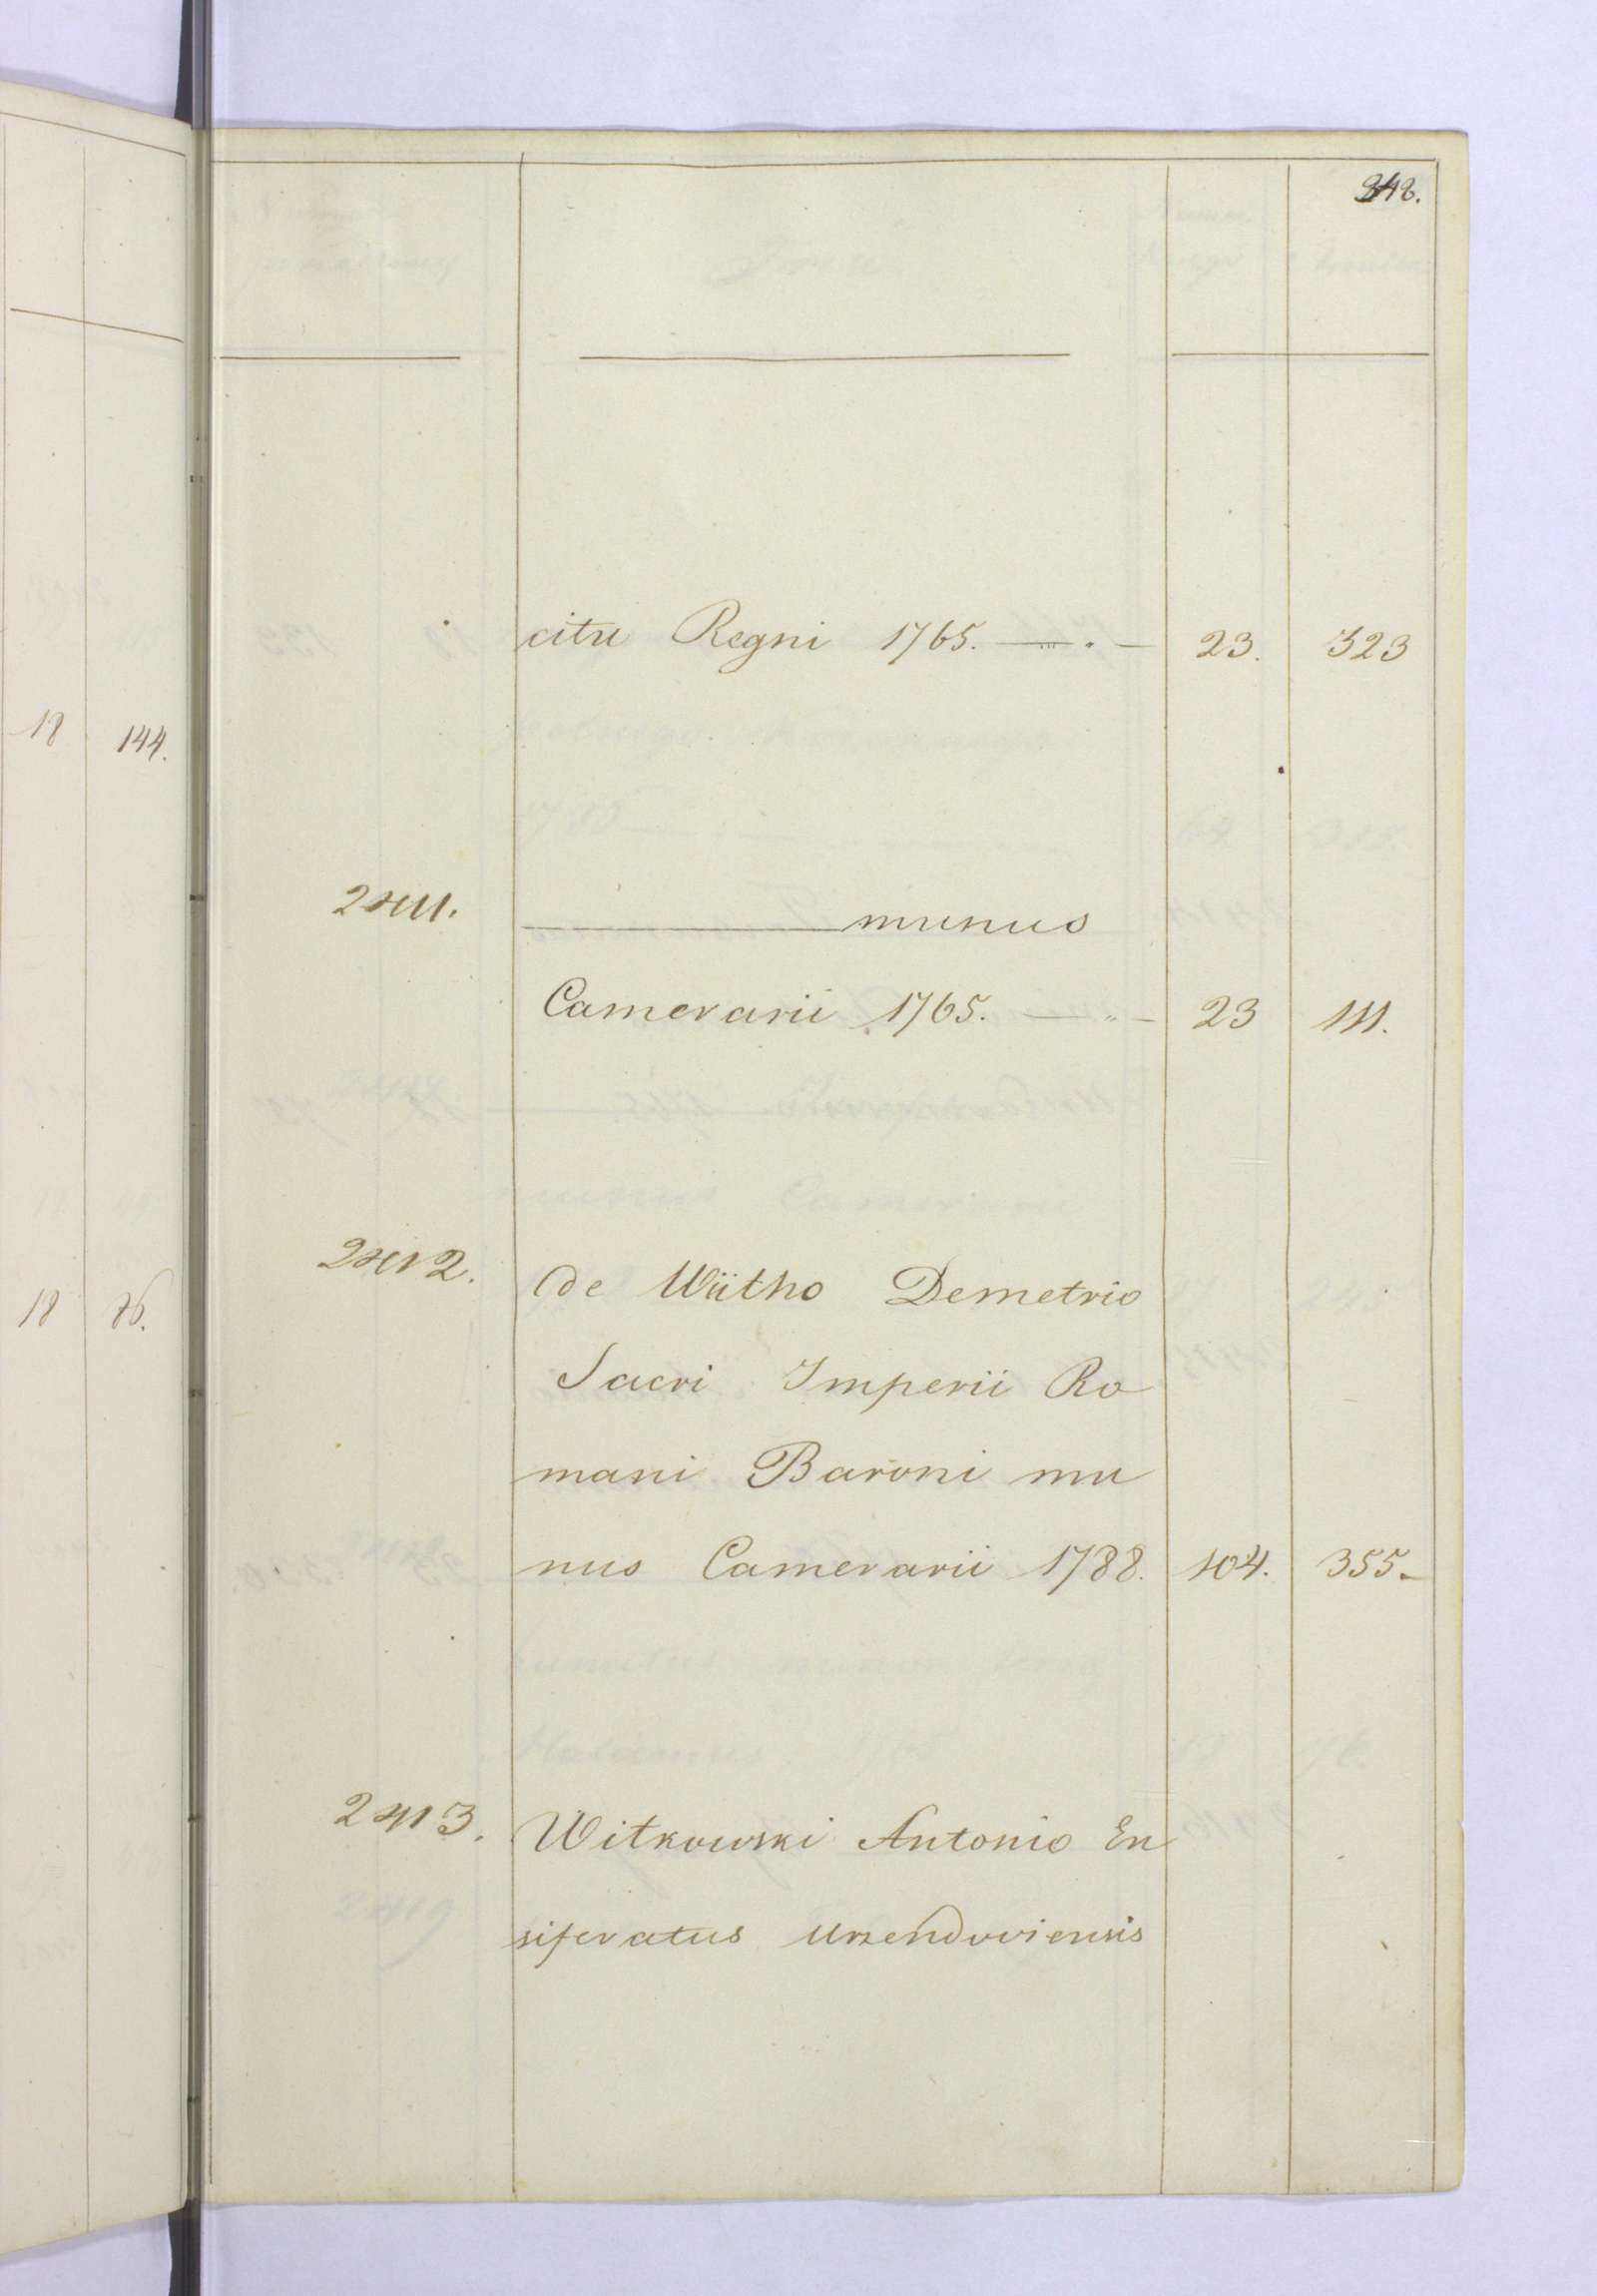 348.
citu Regni 1765. — . — 23. 323
18 144.
2411. ——— munus
Camerarii 1765. — „ — 23 111.
2412. de Wittho Demetrio
18 76.
Sacri Imperii Ro
mani Baroni mu
nus Camerarii 1788. 104. 355.
2413. Witkowski Antonio En
siferatus Urzendoviensis